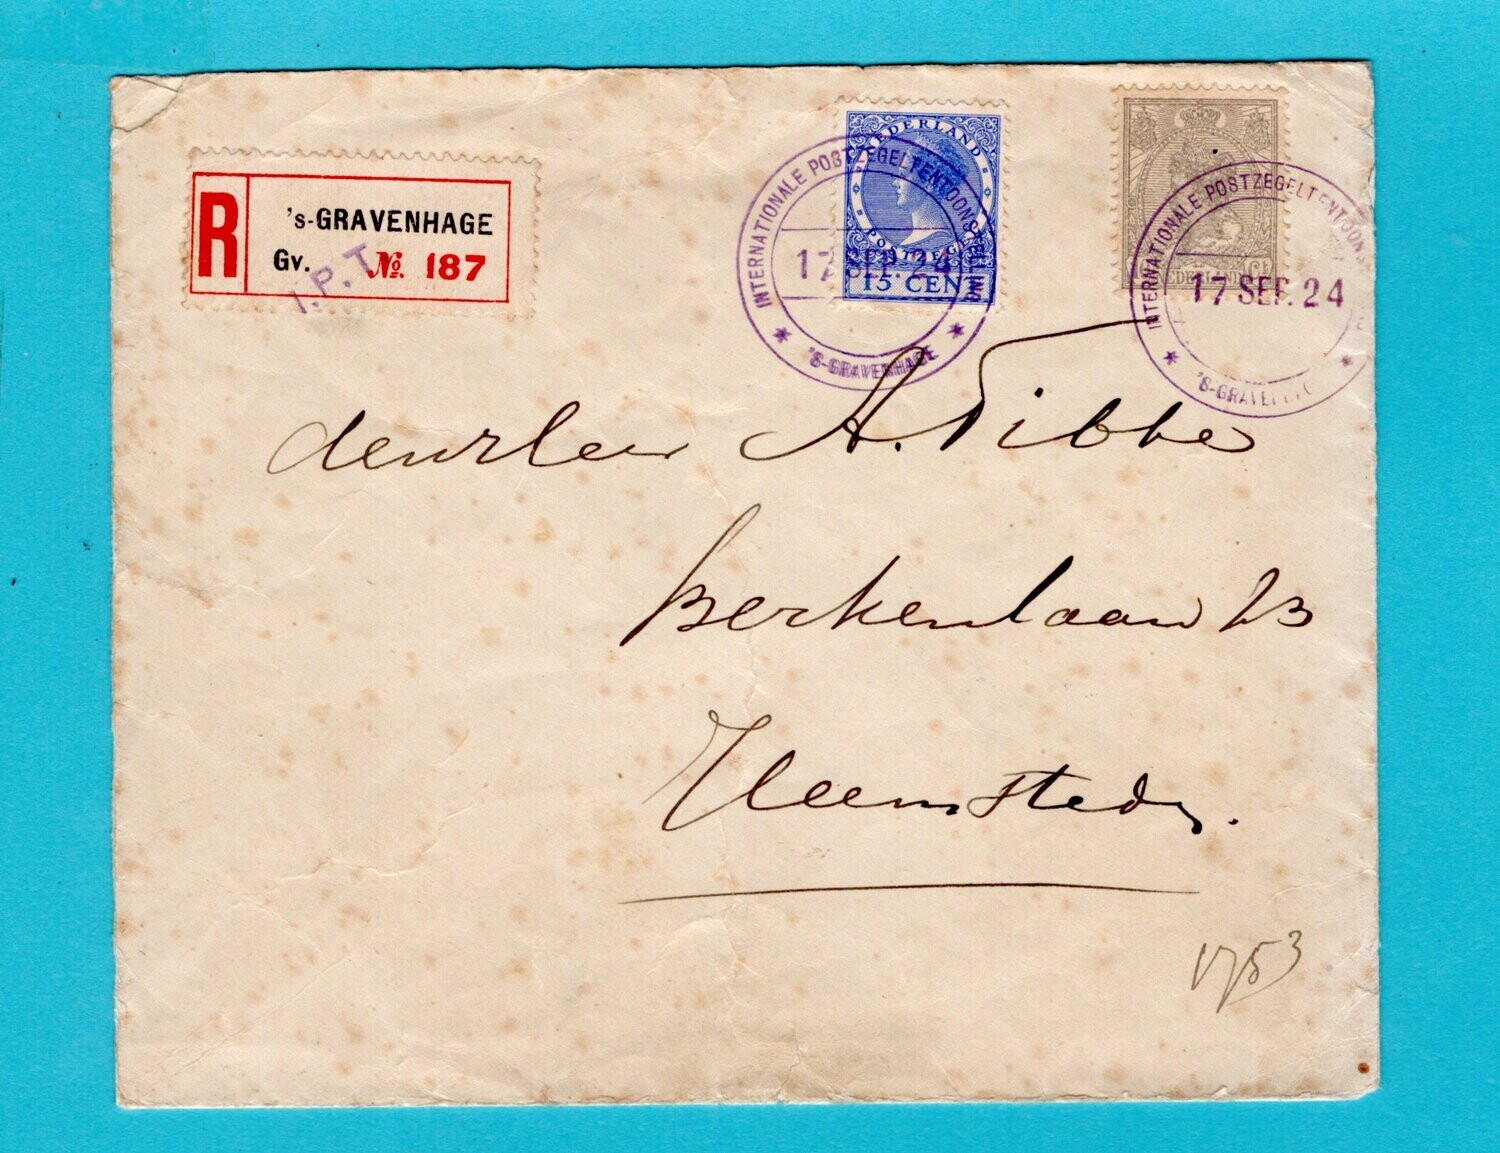 R
's-GRAVENHAGE
Gv. № 187
I.P.T.
NEDERLAND
POSTZEGEL
15 CENT
INTERNATIONALE POSTZEGELTENTOONSTELLING
17 SEP. 24
'S-GRAVENHAGE
NEDERLAND
INTERNATIONALE POSTZEGELTENTOONS
17 SEP. 24
'S-GRAVEN
A. Tibbe
Berkenlaan 23
Heemstede.
1753